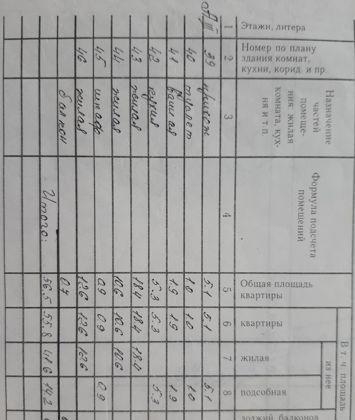 Этажи, литера
Номер по плану здания комнат, кухни, корид. и пр.
Назначение частей помещения: жилая комната, кухня и т.п.
Формула подсчета помещений
Общая площадь квартиры
В т. ч. площадь
квартиры
из нее
жилая
подсобная
лоджий, балконов
1 2 3 4 5 6 7 8
39 5.1 5.1 5.1
40 туалет 1.0 1.0 1.0
41 ванная 1.9 1.9 1.9
42 кухня 5.3 5.3 5.3
43 жилая 18.4 18.4 18.4
44 жилая 10.6 10.6 10.6
45 шкаф 0.9 0.9 0.9
46 жилая 12.6 12.6 12.6
балкон 0.7
Итого: 56.5 55.8 41.6 14.2